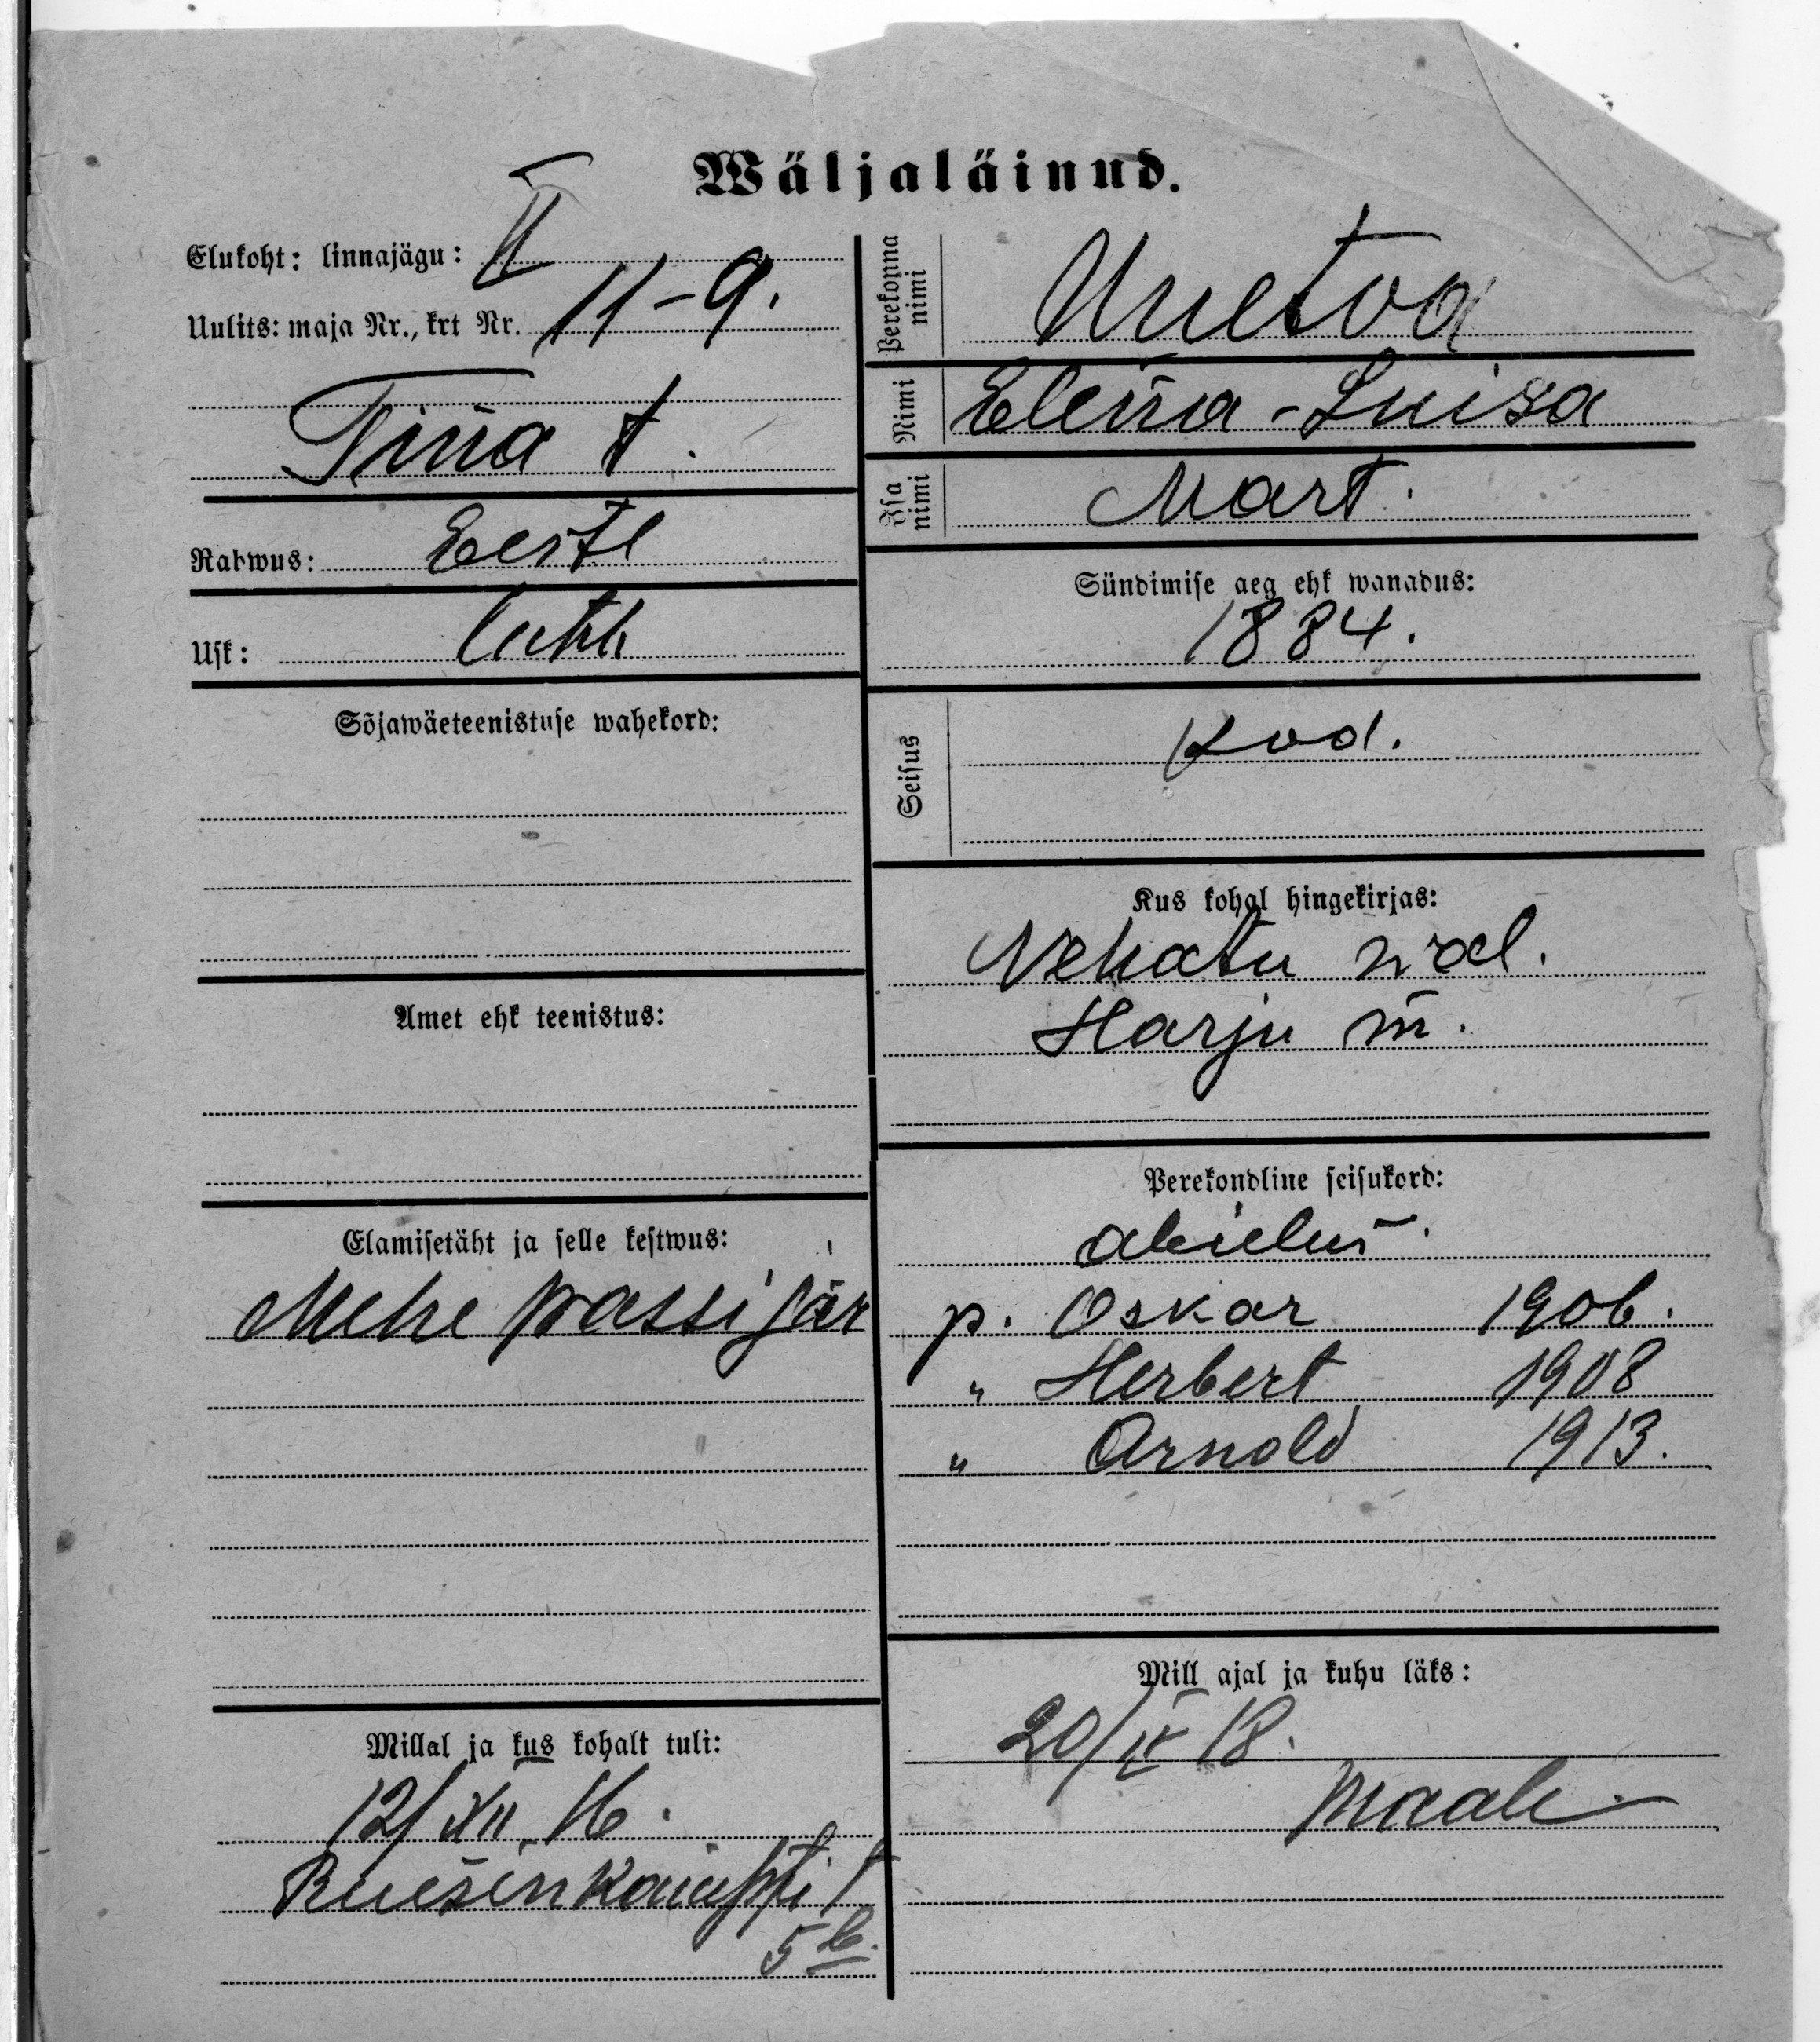 Wäljaläinud.
Elukoht: linnajägu: II
Uulits: maja Nr., krt Nr. 11-9.
Tiina t.
Rahwus: Eesti
Usk: luth
Sõjawäeteenistuse wahekord:
Amet ehk teenistus:
Elamisetäht ja selle kestwus:
Mehe passi jär
Millal ja kus kohalt tuli:
12/XII 16.
5 b.
Perekonna nimi
Nimi Elena-Luisa
Isa nimi Mart.
Sündimise aeg ehk wanadus:
1884.
Seisus kod.
Kus kohal hingekirjas:
Nehatu wal.
Harju m.
Perekondline seisukord:
abielus.
p. Oskar 1906.
" Herbert 1908
" Arnold 1913.
Mill ajal ja kuhu läks:
20/IV 18.
Maale